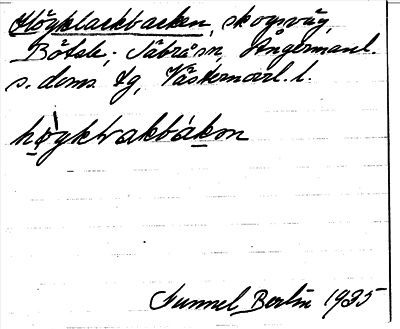 Höyklackbacken, skogsväg,
Bölsle; Säbrå sn, Ångermanl.
s. doms. tg, Västernorrl. l.
höykl⁠rakbákən
Gunnel Berlin 1935